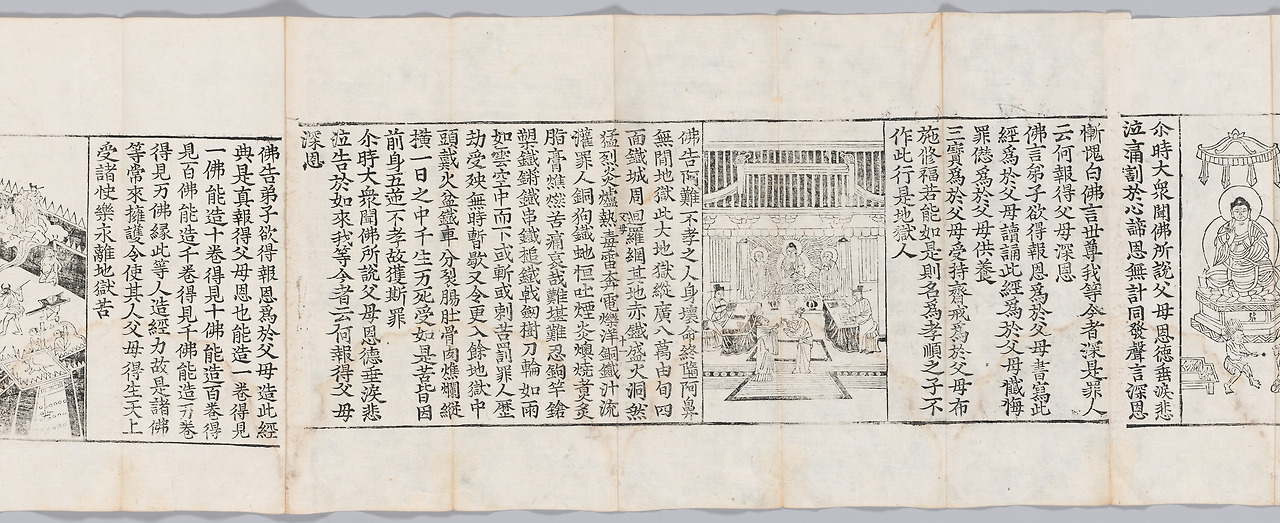 尒時大衆聞佛所說父母恩德垂淚悲
泣痛割於心諦思無計同發聲言深思
慚愧白佛言世尊我等今者深是罪人
云何報得父母深恩
佛言弟子欲得報恩爲於父母書寫此
經爲於父母讀誦此經爲於父母懺悔
罪愆爲於父母供養
三寶爲於父母受持齋戒爲於父母布
施修福若能如是則名爲孝順之子不
作此行是地獄人
佛告阿難不孝之人身壞命終墮阿鼻
無間地獄此大地獄縱廣八萬由旬四
面鐵城周迴羅網其地亦鐵盛火洞然
猛烈炎爐熱毒雷奔電爍洋銅鐵汁流
灌罪人銅狗鐵虵恒吐煙火燠燒煑炙
脂膏燋燃苦痛哀哉難堪難忍鉤竿鎗
槊鐵鏘鐵串鐵搥鐵戟劒樹刀輪如雨
如雲空中而下或斬或刺苦罰罪人歷
劫受殃無時暫歇又令更入餘地獄中
頭戴火盆鐵車分裂膓肚骨肉燋爛縱
橫一日之中千生万死受如是苦皆因
前身五逆不孝故獲斯罪
尒時大衆聞佛所說父母恩德垂淚悲
泣告於如來我等今者云何報得父母
深恩
佛告弟子欲得報恩爲於父母造此經
典是真報得父母恩也能造一卷得見
一佛能造十卷得見十佛能造百卷得
見百佛能造千卷得見千佛能造万卷
得見万佛緣此等人造經力故是諸佛
等常來擁護令使其人父母得生天上
受諸快樂永離地獄苦